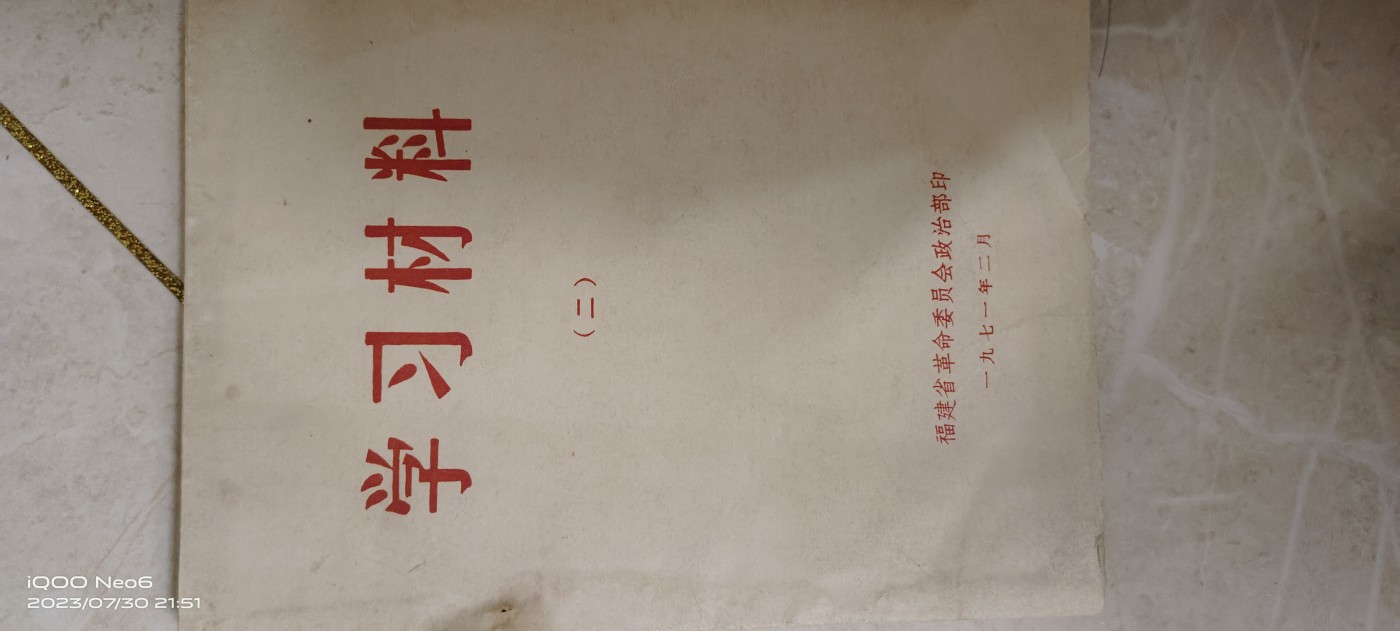 学习材料
（二）
福建省革命委员会政治部印
一九七一年二月
iQOO Neo6
2023/07/30 21:51